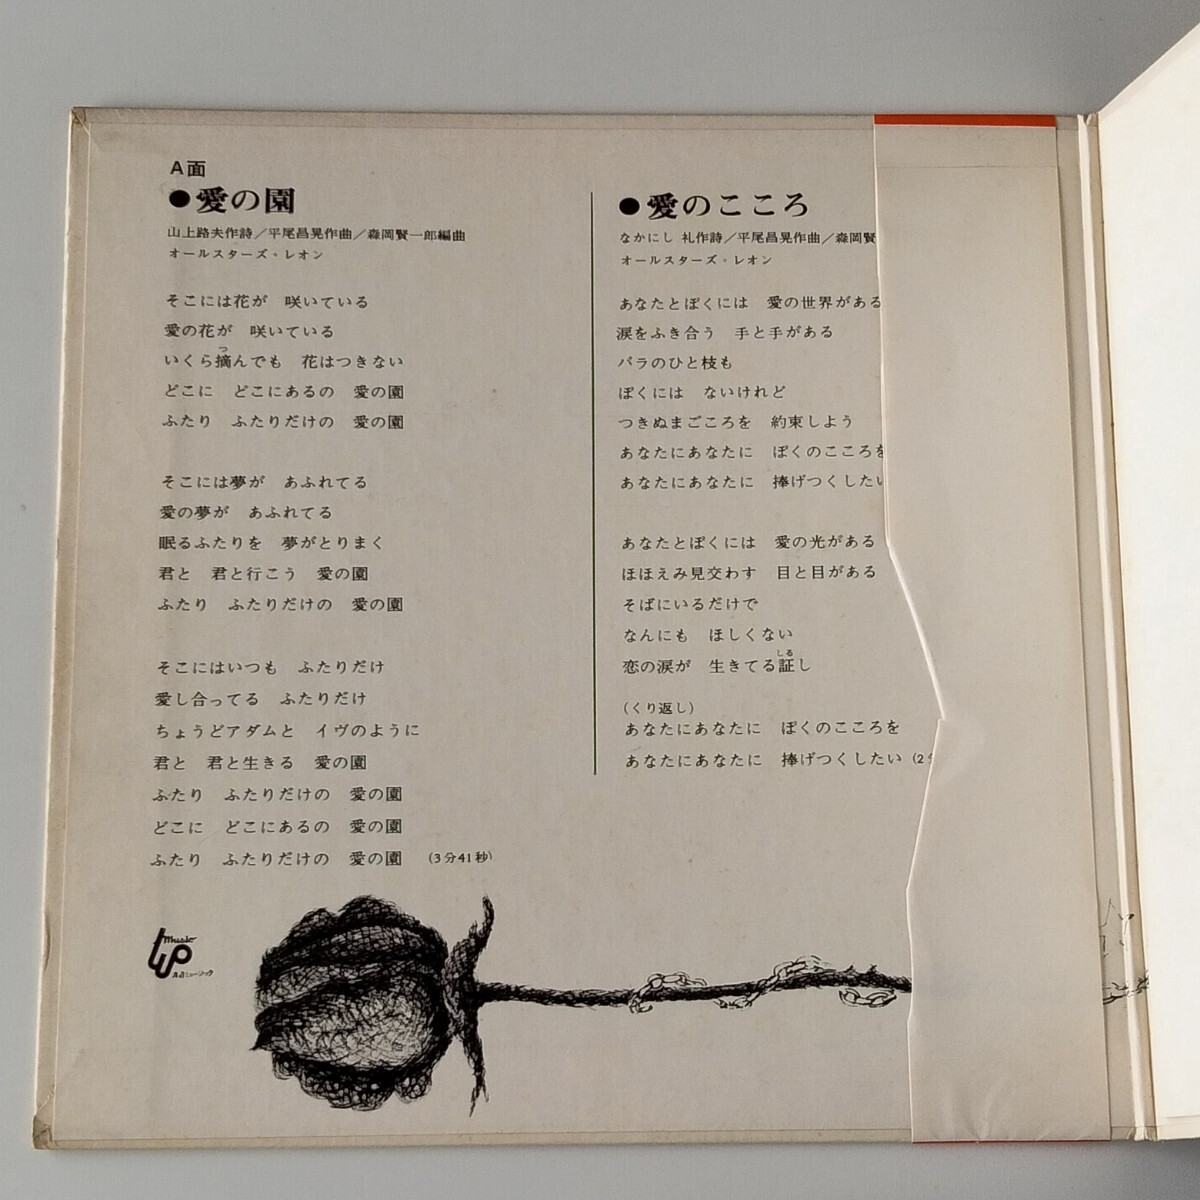 A面
●愛の園
山上路夫作詩／平尾昌晃作曲／森岡賢一郎編曲
オールスターズ・レオン
そこには花が　咲いている
愛の花が　咲いている
いくら摘んでも　花はつきない
どこに　どこにあるの　愛の園
ふたり　ふたりだけの　愛の園
そこには夢が　あふれてる
愛の夢が　あふれてる
眠るふたりを　夢がとりまく
君と　君と行こう　愛の園
ふたり　ふたりだけの　愛の園
そこにはいつも　ふたりだけ
愛し合ってる　ふたりだけ
ちょうどアダムと　イヴのように
君と　君と生きる　愛の園
ふたり　ふたりだけの　愛の園
どこに　どこにあるの　愛の園
ふたり　ふたりだけの　愛の園　（3分41秒）
●愛のこころ
なかにし 礼作詩／平尾昌晃作曲／森岡賢
オールスターズ・レオン
あなたとぼくには　愛の世界がある
涙をふき合う　手と手がある
バラのひと枝も
ぼくには　ないけれど
つきぬまごころを　約束しよう
あなたにあなたに　ぼくのこころを
あなたにあなたに　捧げつくしたい
あなたとぼくには　愛の光がある
ほほえみ見交わす　目と目がある
そばにいるだけで
なんにも　ほしくない
恋の涙が　生きてる証し
（くり返し）
あなたにあなたに　ぼくのこころを
あなたにあなたに　捧げつくしたい（2分
music